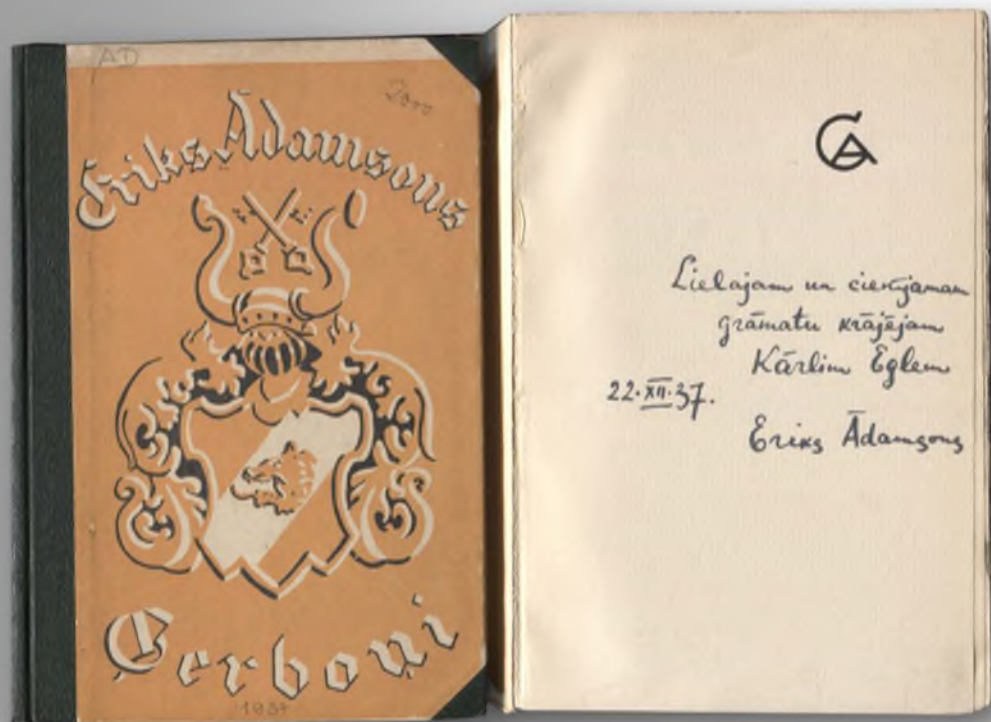 AD
2000
Eriks Ādamsons
Ģerboņi
1937
Lielajam un cienījamam
grāmatu krājējam
Kārlim Eglem
22.XII.37.
Eriks Ādamsons